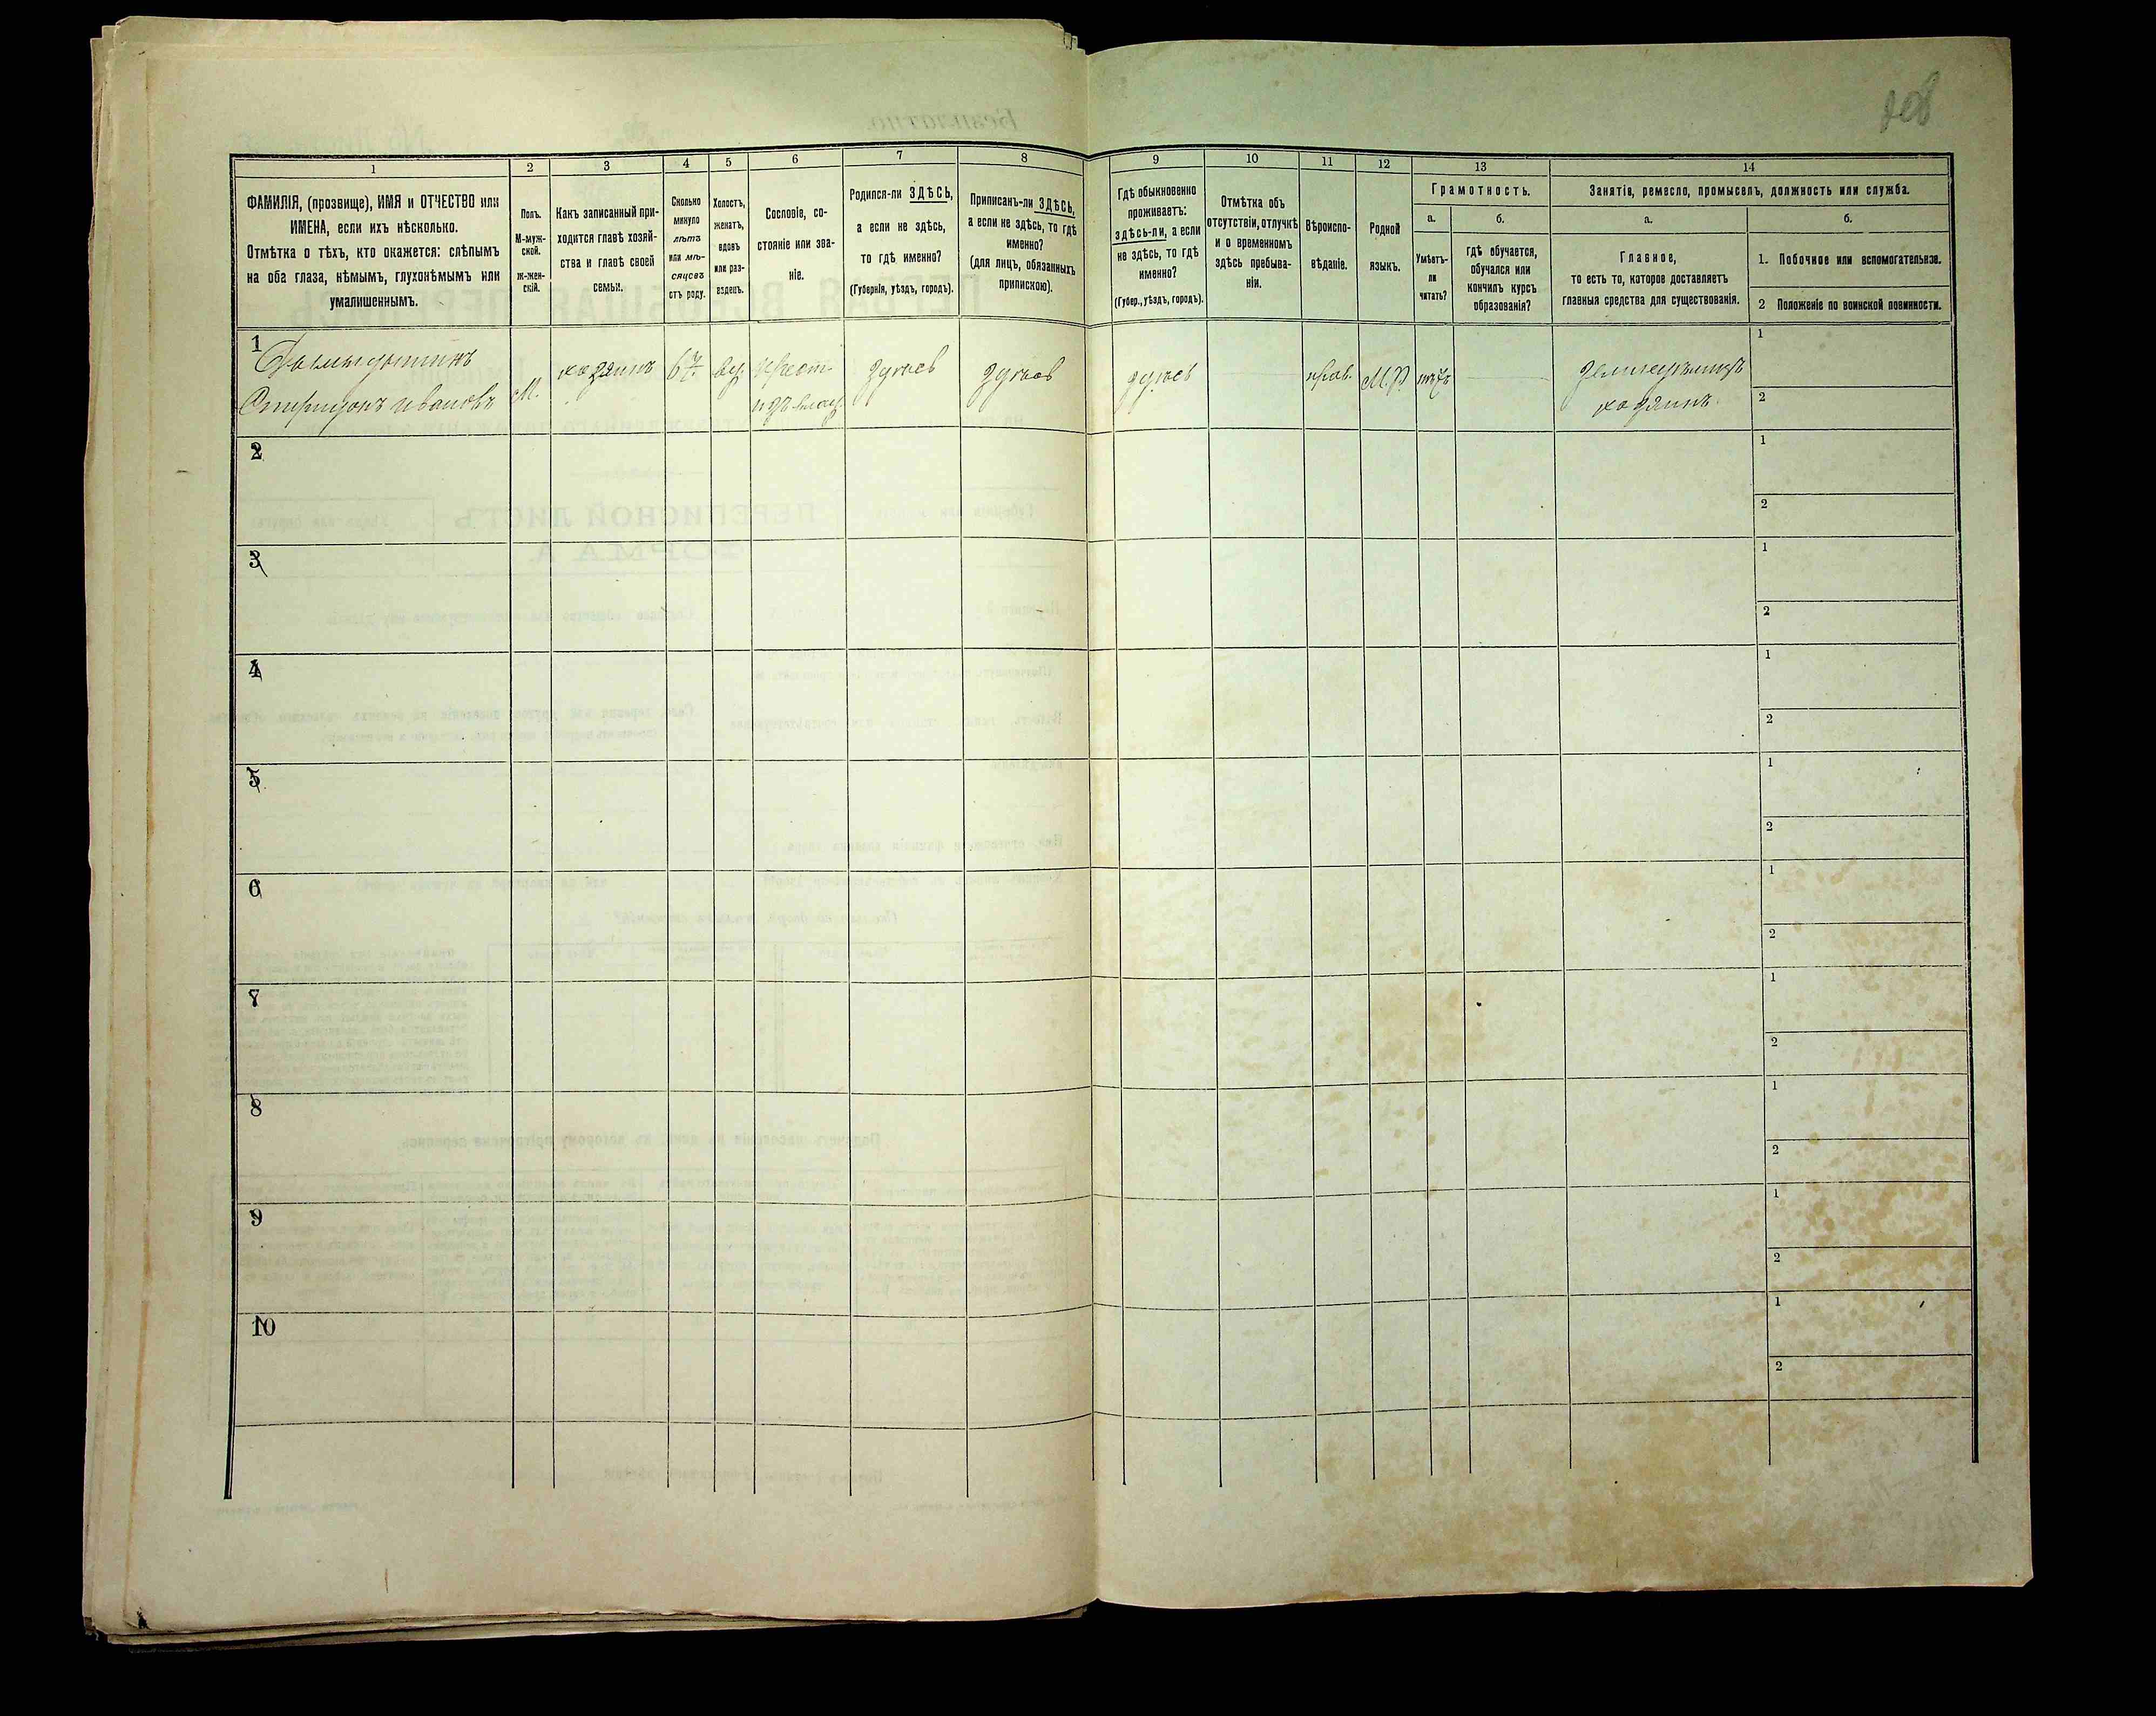 108
1
ФАМИЛІЯ, (прозвище), ИМЯ и ОТЧЕСТВО или
ИМЕНА, если ихъ нѣсколько.
Отмѣтка о тѣхъ, кто окажется: слѣпымъ
на оба глаза, нѣмымъ, глухонѣмымъ или
умалишеннымъ.
2
Полъ.
М-муж-
ской.
ж-жен-
скій.
3
Какъ записанный при-
ходится главѣ хозяй-
ства и главѣ своей
семьи.
4
Сколько
минуло
лѣтъ
или мѣ-
сяцевъ
отъ роду.
5
Холостъ,
женатъ,
вдовъ
или раз-
веденъ.
6
Сословіе, со-
стояніе или зва-
ніе.
7
Родился-ли ЗДѢСЬ,
а если не здѣсь,
то гдѣ именно?
(Губернія, уѣздъ, городъ).
8
Приписанъ-ли ЗДѢСЬ,
а если не здѣсь, то гдѣ
именно?
(для лицъ, обязанныхъ
припискою).
9
Гдѣ обыкновенно
проживаетъ:
здѣсь-ли, а если
не здѣсь, то гдѣ
именно?
(Губер., уѣздъ, городъ).
10
Отмѣтка объ
отсутствіи, отлучкѣ
и о временномъ
здѣсь пребыва-
ніи.
11
Вѣроиспо-
вѣданіе.
12
Родной
языкъ.
13
Грамотность.
а.
Умѣетъ-
ли
читать?
б.
гдѣ обучается,
обучался или
кончилъ курсъ
образованія?
14
Занятіе, ремесло, промыселъ, должность или служба.
а.
Главное,
то есть то, которое доставляетъ
главныя средства для существованія.
б.
1. Побочное или вспомогательное.
2 Положеніе по воинской повинности.
1
Спиридонъ Ивановъ
М.
хозяинъ
67.
вд.
крест.
изъ влад.
здѣсь
здѣсь
здѣсь
прав.
М.Р.
нѣтъ
земледѣлецъ
хозяинъ.
1
2
2
1
2
3
1
2
4
1
2
5
1
2
6
1
2
7
1
2
8
1
2
9
1
2
10
1
2